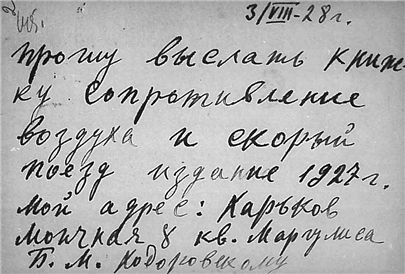 3/VIII-28г.
прошу выслать книж-
ку сопротивление
воздуха и скорый
поезд издание 1927г.
мой адрес: Харьков
8 кв. Маргулиса
Б. М. Ходоровскому